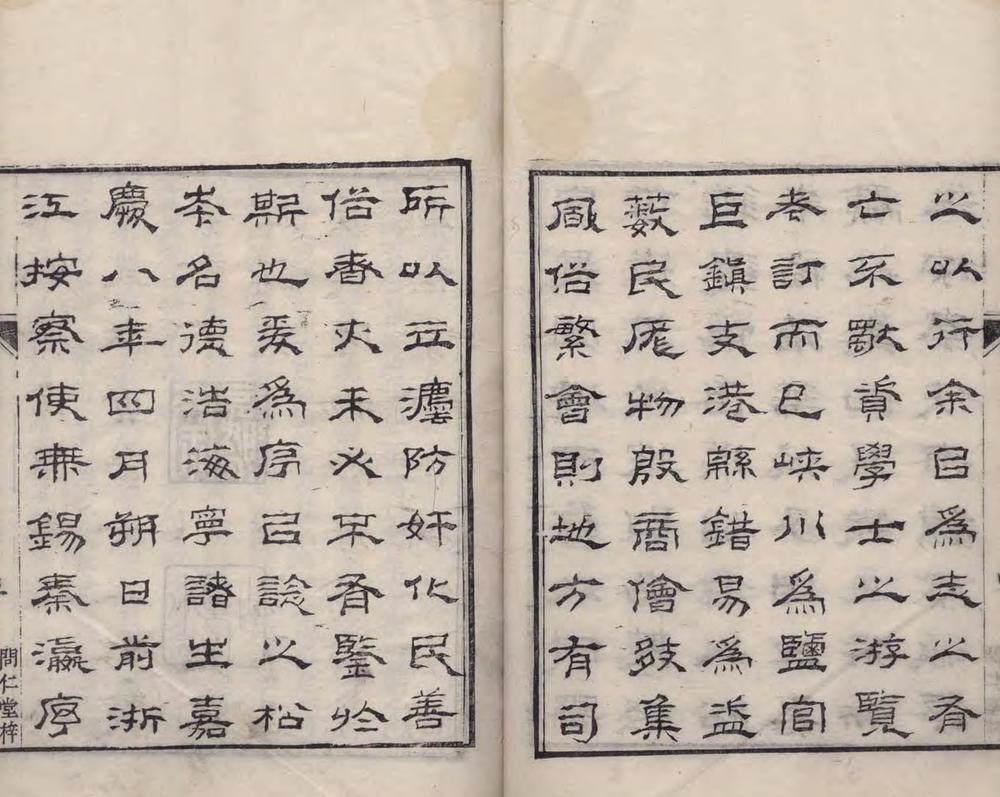 之以行余㠯爲志之有
亡不獨資學士之游覽
考訂而已峽川爲鹽官
巨鎮支港緜錯易爲盜
藪民厖物殷商儈集
風俗繁會則地方有司
所以立灋防奸化民善
俗者亦未必不有鑒於
斯也爰爲序㠯諗之松
本名德浩海寧諸生嘉
慶八年四月朔日前浙
江按察使無錫秦瀛序
問仁堂梓